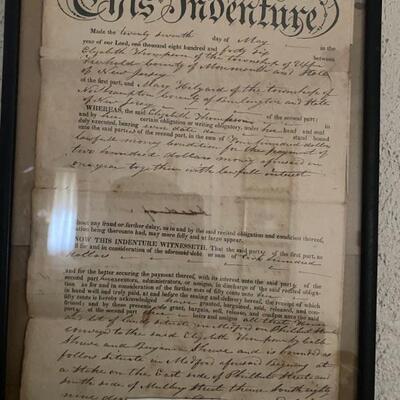 This Indenture,
Made the twenty seventh day of May in the
year of our Lord, one thousand eight hundred and forty six between
Elizabeth Thompson of the township of Upper
Freehold County of Monmouth and State
of New Jersey
of the first part, and Mary Hilyard of the township of
Northampton County of Burlington and State
of New Jersey of the second part:
WHEREAS, the said Elizabeth Thompson
in and by her certain obligation or writing obligatory, under her hand and seal
duly executed, bearing even date stand bound
unto the said parties of the second part, in the sum of Four hundred dollars
lawfull money condition for the payment of
two hundred dollars money aforesaid in
one year together with lawfull interest
without any fraud or further delay, as in and by the said recited obligation and condition thereof,
relation being thereunto had, may more fully and at large appear.
NOW THIS INDENTURE WITNESSETH, That the said party of the first part, as
for and in consideration of the aforesaid debt or sum of two hundred
dollars
and for the better securing the payment thereof, with its interest unto the said party of the
second part executors, administrators, or assigns, in discharge of the said recited obligation
as for and in consideration of the further sum of fifty cents unto her
in hand well and truly paid, at and before the sealing and delivery hereof, the receipt of which
is hereby acknowledged have granted, bargained, sold, released, and con-
firmed; and by these presents do grant, bargain, sell, release, and confirm unto the said
party of the second part heirs and assigns all that House
and lot of land situate in Medford on
conveyed to the said Elizabeth Thompson by Caleb
Shreve and Benjamin Shreve and is bounded as
follow Situate in Medford aforesaid Begining at
a Stake on the East side of Street and
South side of Mulberry Street thence South eighty
nine